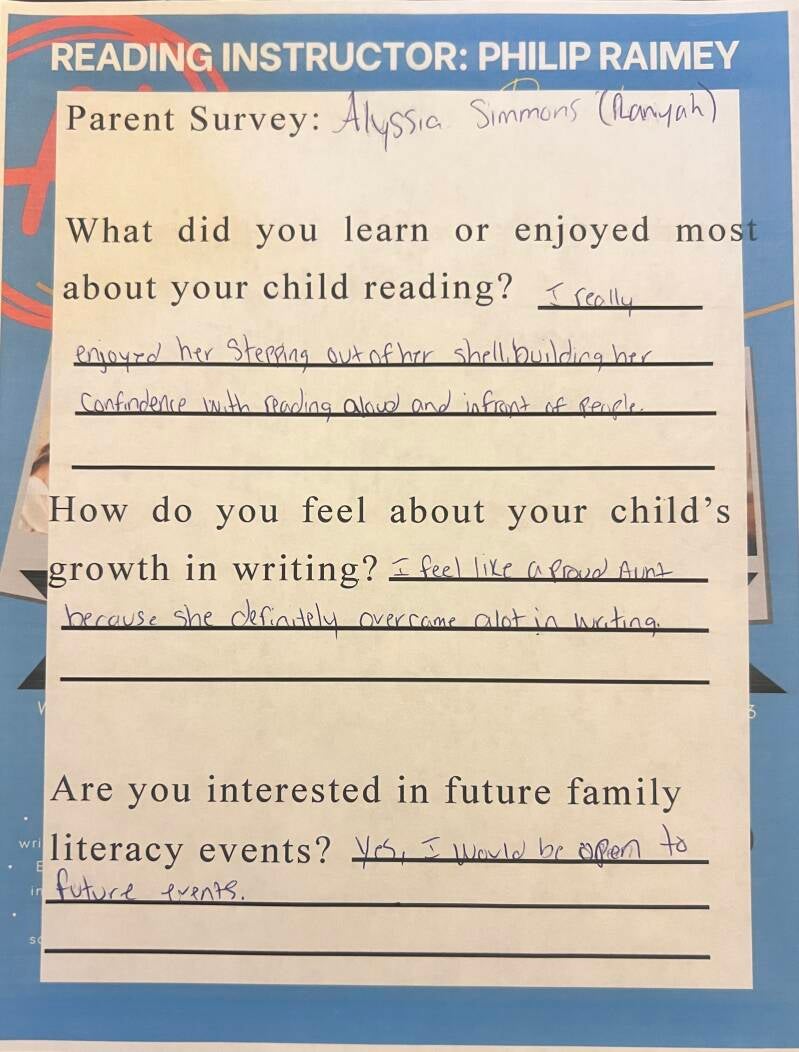 READING INSTRUCTOR: PHILIP RAIMEY
Parent Survey: Alyssia Simmons (Raniyah)
What did you learn or enjoyed most
about your child reading? I really
enjoyed her Stepping out of her shell, building her
Confindence with reading aloud and infront of People.
How do you feel about your child's
growth in writing? I feel like a Proud Aunt
because she definitely overcame alot in writing.
Are you interested in future family
literacy events? Yes, I would be open to
future events.